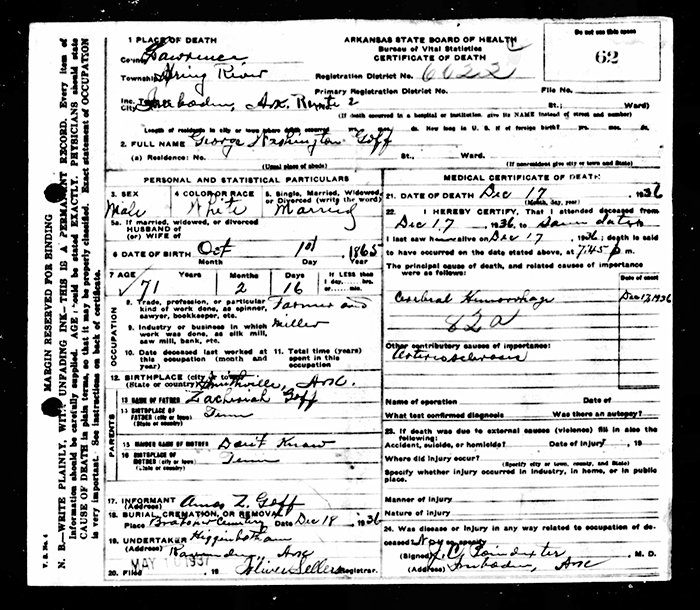 MARGIN RESERVED FOR BINDING
N. B.—WRITE PLAINLY, WITH UNFADING INK—THIS IS A PERMANENT RECORD. Every item of
information should be carefully supplied. AGE should be stated EXACTLY. PHYSICIANS should state
CAUSE OF DEATH in plain terms, so that it may be properly classified. Exact statement of OCCUPATION
is very important. See instructions on back of certificate.
V. S. No. 4
ARKANSAS STATE BOARD OF HEALTH
Bureau of Vital Statistics
CERTIFICATE OF DEATH
Do not use this space
62
1 PLACE OF DEATH
County Lawrence
Township Spring River
Registration District No. 6622
Primary Registration District No.
File No.
Inc. Town
City Imboden, Ark Route 2
St.; Ward)
(If death occurred in a hospital or institution, give its NAME instead of street and number)
Length of residence in city or town where death occurred yrs. mos. ds. How long in U. S. if of foreign birth? yrs. mos. ds.
2. FULL NAME George Washington Goff
(a) Residence: No. St., Ward.
(Usual place of abode) (If nonresident give city or town and State)
PERSONAL AND STATISTICAL PARTICULARS
3. SEX
Male
4 COLOR OR RACE
White
5. Single, Married, Widowed,
or Divorced (write the word)
Married
5a. If married, widowed, or divorced
HUSBAND of
(or) WIFE of
6 DATE OF BIRTH Oct 1st 1865
Month Day Year
7 AGE Years Months Days If LESS than
1 day, hrs.
or min.
71 2 16
OCCUPATION
8. Trade, profession, or particular
kind of work done, as spinner,
sawyer, bookkeeper, etc.
Farmer and
Miller
9. Industry or business in which
work was done, as silk mill,
saw mill, bank, etc.
10. Date deceased last worked at
this occupation (month and
year)
11. Total time (years)
spent in this
occupation
12. BIRTHPLACE (city or town)
(State or country) Smithville, Ark.
PARENTS
13 NAME OF FATHER Zachariah Goff
14 BIRTHPLACE OF
FATHER (city or town)
(State or country)
Tenn
15 MAIDEN NAME OF MOTHER Don't Know
16 BIRTHPLACE OF
MOTHER (city or town)
(State or country)
Tenn
17. INFORMANT Amos Z. Goff
(Address)
18. BURIAL, CREMATION, OR REMOVAL
Place Cemetery Date Dec 18, 1936
19. UNDERTAKER Higginbotham
(Address) Ravenden, Ark
20. Filed MAY 1937 19 Oliver Sellers Registrar.
MEDICAL CERTIFICATE OF DEATH
21. DATE OF DEATH Dec 17, 1936
(Month, day, year)
22. I HEREBY CERTIFY, That I attended deceased from
Dec 17, 1936, to Same date, 19
I last saw him alive on Dec 17, 1936; death is said
to have occurred on the date stated above, at 7:45 p m.
The principal cause of death, and related causes of importance
were as follows:
Date of onset
Cerebral Hemorrhage Dec 17, 1936
82a
Other contributory causes of importance:
Arteriosclerosis
Name of operation Date of
What test confirmed diagnosis Was there an autopsy?
23. If death was due to external causes (violence) fill in also the
following:
Accident, suicide, or homicide? Date of injury , 19
Where did injury occur?
(Specify city or town, county, and State)
Specify whether injury occurred in industry, in home, or in public
place.
Manner of injury
Nature of injury
24. Was disease or injury in any way related to occupation of de-
ceased? No If so, specify
(Signed) J. C. Poindexter, M. D.
(Address) Imboden, Ark